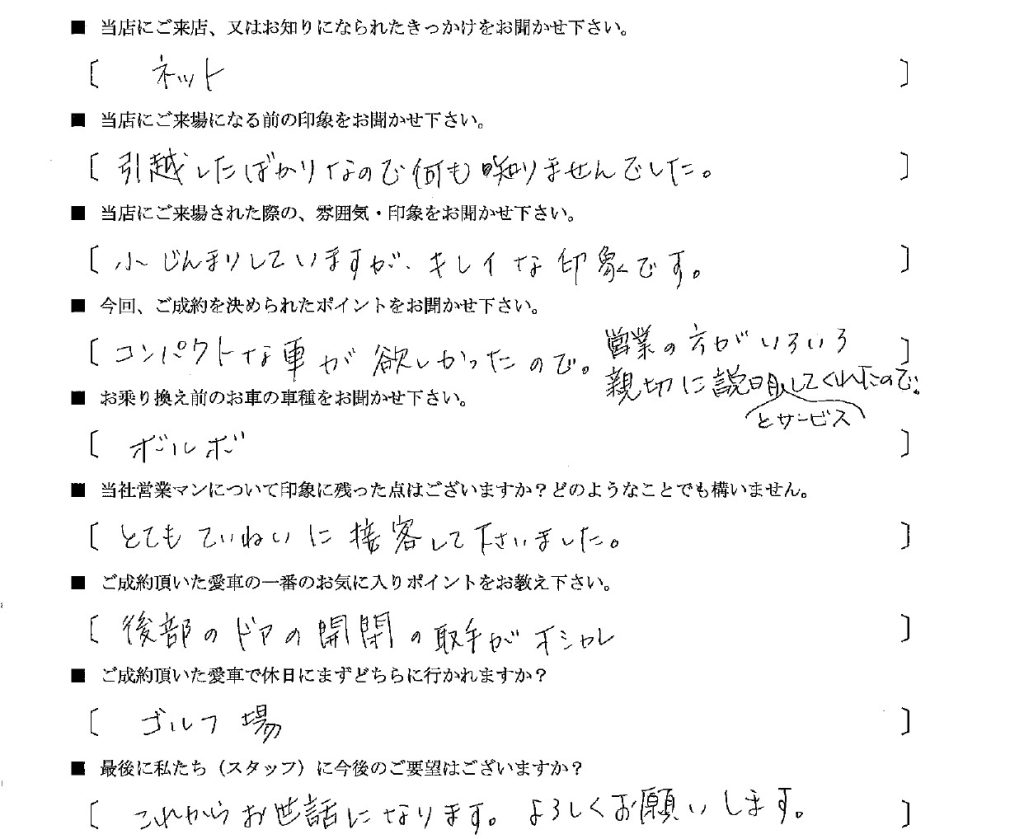 ■ 当店にご来店、又はお知りになられたきっかけをお聞かせ下さい。
[ ネット ]
■ 当店にご来場になる前の印象をお聞かせ下さい。
[ 引越したばかりなので何も知りませんでした。 ]
■ 当店にご来場された際の、雰囲気・印象をお聞かせ下さい。
[ 小じんまりしていますが、キレイな印象です。 ]
■ 今回、ご成約を決められたポイントをお聞かせ下さい。
[ コンパクトな車が欲しかったので。営業の方がいろいろ ]
親切に説明してくれたので。
とサービス
■ お乗り換え前のお車の車種をお聞かせ下さい。
[ ボルボ ]
■ 当社営業マンについて印象に残った点はございますか？どのようなことでも構いません。
[ とてもていねいに接客して下さいました。 ]
■ ご成約頂いた愛車の一番のお気に入りポイントをお教え下さい。
[ 後部のドアの開閉の取手がオシャレ ]
■ ご成約頂いた愛車で休日にまずどちらに行かれますか？
[ ゴルフ場 ]
■ 最後に私たち（スタッフ）に今後のご要望はございますか？
[ これからお世話になります。よろしくお願いします。 ]